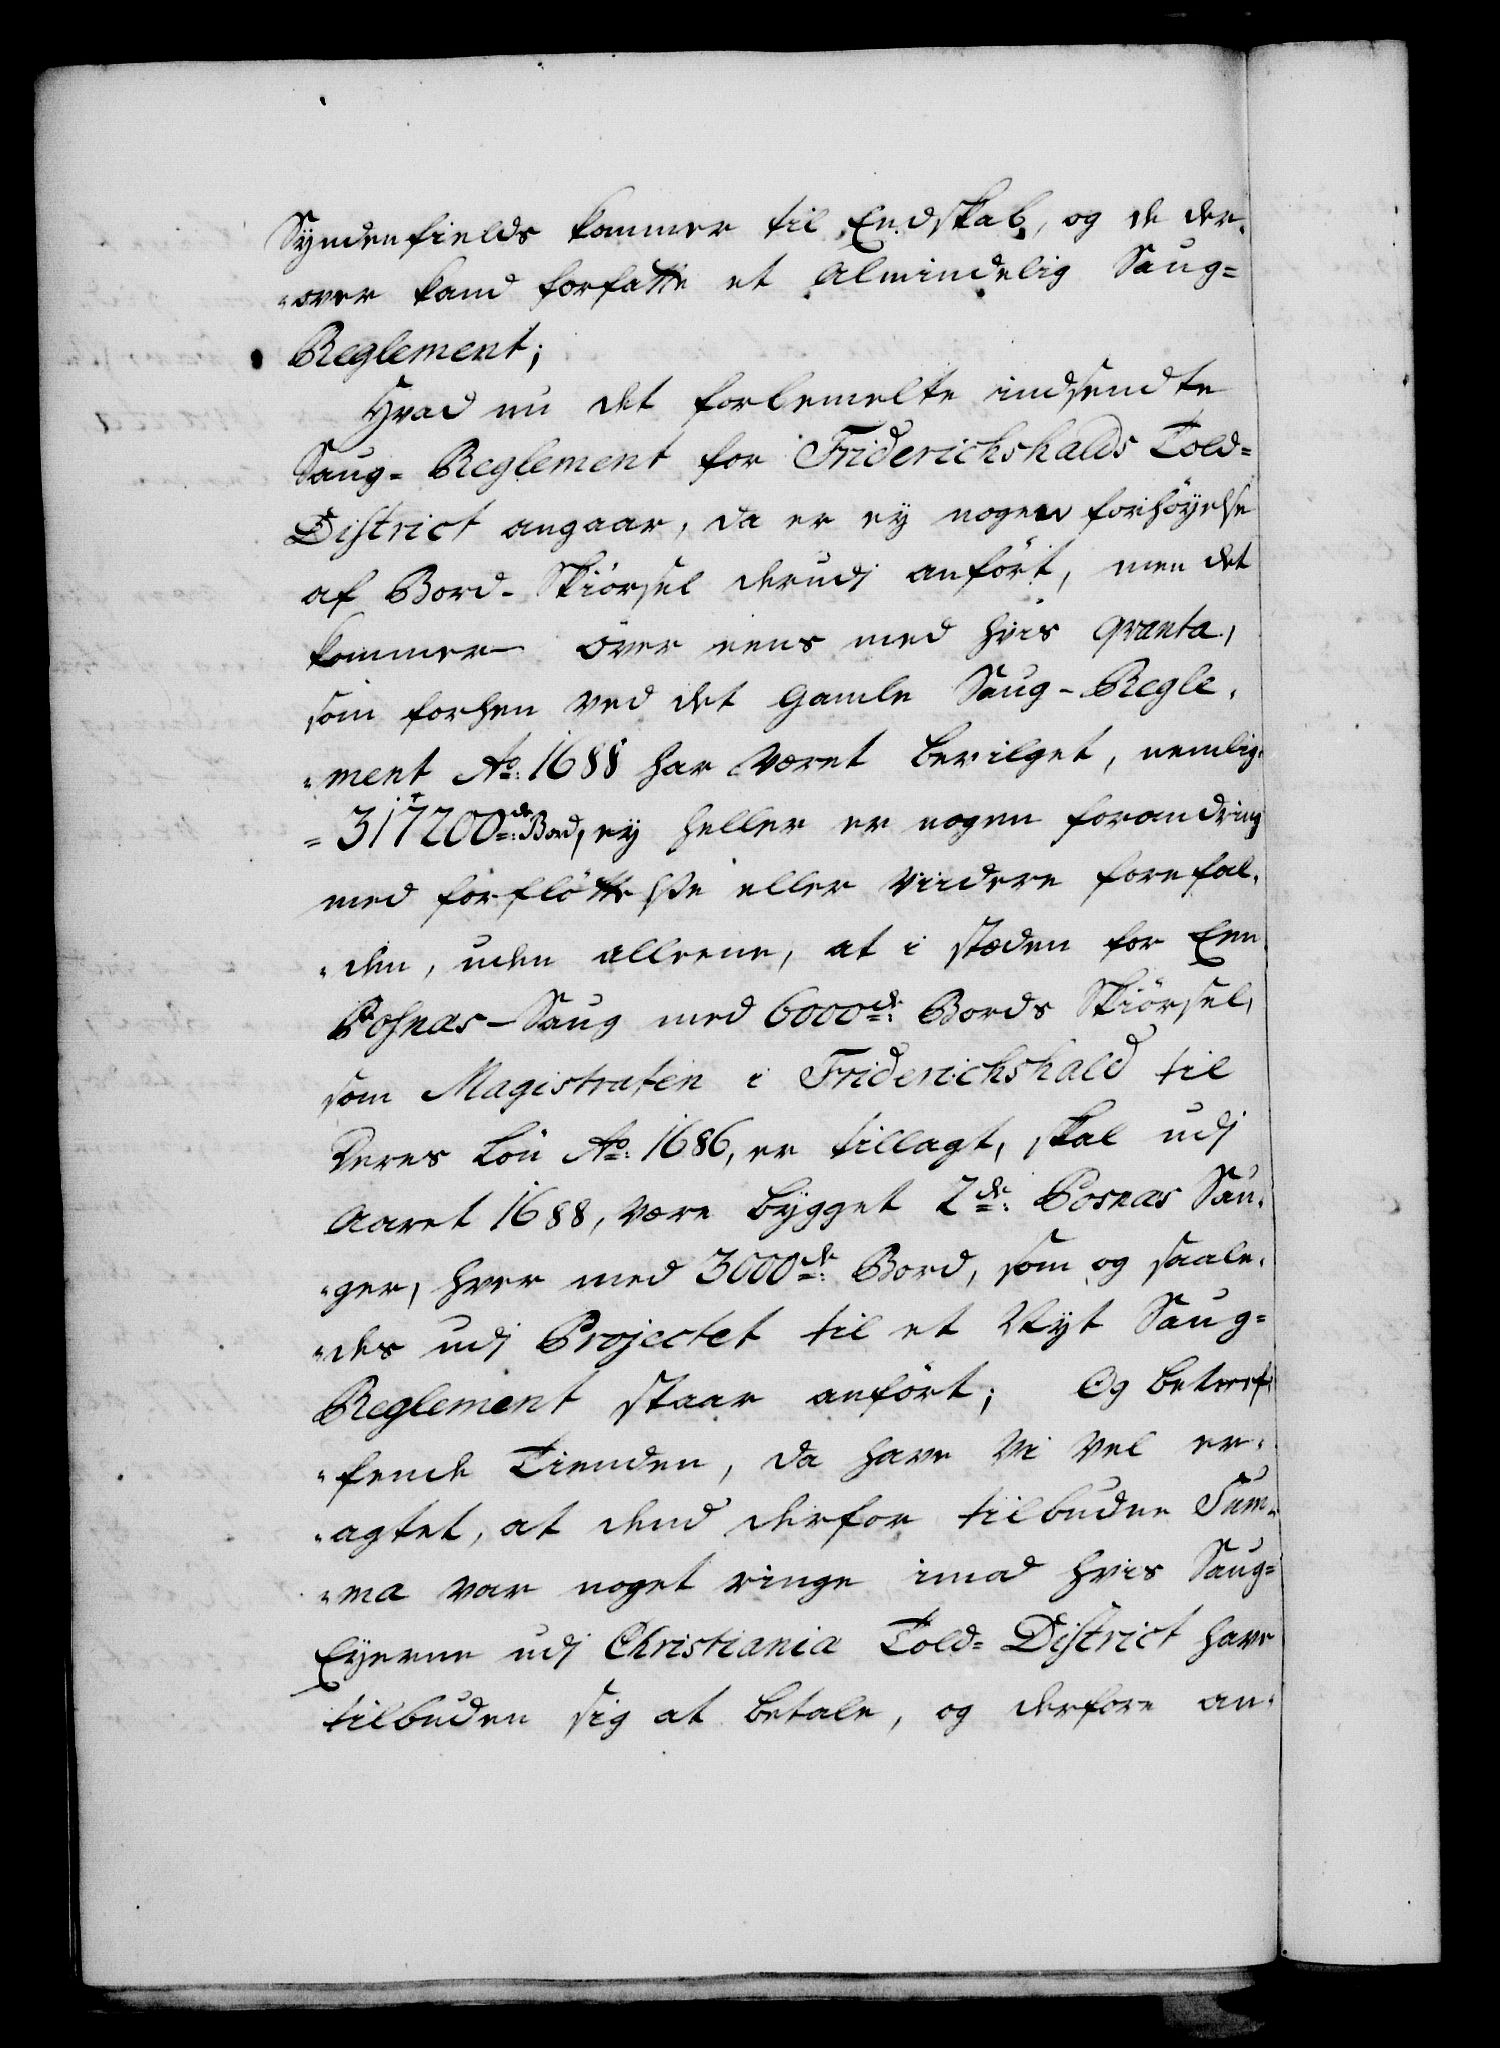 Syndenfields kommer til Endskab, og de der-
-over kand forfatte et Almindelig Saug=
Reglement;
Hvad nu det forbemelte indsendte
Saug- Reglement for Friderichshalds Told=
District angaar, da er ey nogen forhöyelse
af Bord- Skiörsel derudj anfört, men det
kommer över eens med hvis qvanta,
som forhen ved det gamle Saug-Regle-
-ment Ao: 1688 har været bevilget, nemlig
= 317200de: Bord, ey heller er nogen forandring
med forflöttelse eller viidere forefal-
-den, uden alleene, at i stæden for Een
Posnas-Saug med 6000de: Bords Skiörsel,
som Magistraten i Friderichshald til
deres Lön Ao: 1686, er tillagt, skal udj
Aaret 1688, være bÿgget 2de: Posnas Sau-
-ger, hver med 3000de: Bord, som og saale-
-des udj Projectet til et Nyt Saug=
Reglement staar anfört; Og betref-
-fende Tienden, da have Vi vel er-
-agtet, at dend derfor tilbudne Sum-
-ma var noget ringe imod hvis Saug=
Eÿerne udj Christiania Told= District have
tilbuden sig at betale, og derfore an-